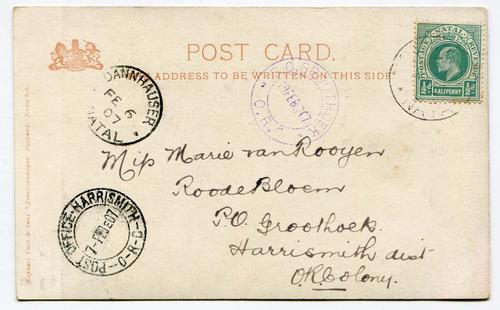 POST CARD.
ADDRESS TO BE WRITTEN ON THIS SIDE
DANNHAUSER
FE 6
07
NATAL
GROOTHOEK
O.R.C.
POSTAGE NATAL REVENUE
½d HALFPENNY ½d
NATAL
Miss Marie van Rooyen
Roode Bloem
P.O. Groothoek
Harrismith dist
O.R. Colony.
POST OFFICE-HARRISMITH-O-R-C-
7-FE 07